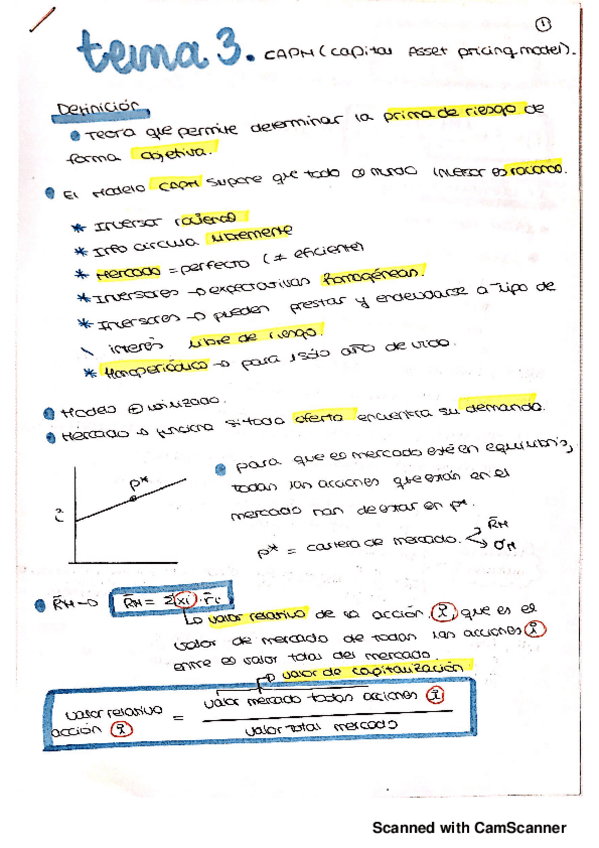 1
tema 3. CAPM (Capital Asset pricing model).
Definición
Teoría que permite determinar la prima de riesgo de
forma objetiva.
El Modelo CAPM supone que todo el mundo inversor es racional.
* Inversor racional
* Info circula libremente
* Mercado = perfecto (≠ eficiente)
* Inversores → expectativas homogéneas.
* Inversores → pueden prestar y endeudarse a Tipo de
interés libre de riesgo.
* Monoperiódico → para 1 sólo año de vida.
Modelo ⊕ utilizado.
Mercado → funciona si toda oferta encuentra su demanda.
para que el mercado esté en equilibrio,
todas las acciones que están en el
mercado han de estar en p*.
p* = cartera de mercado. R̄M
σM
p*
r̄
R̄M → R̄M = Σ xi · r̄i
valor relativo de la acción i, que es el
valor de mercado de todas las acciones i
entre el valor total del mercado.
valor de capitalización
valor relativo acción i = valor mercado todas acciones i
valor total mercado
Scanned with CamScanner